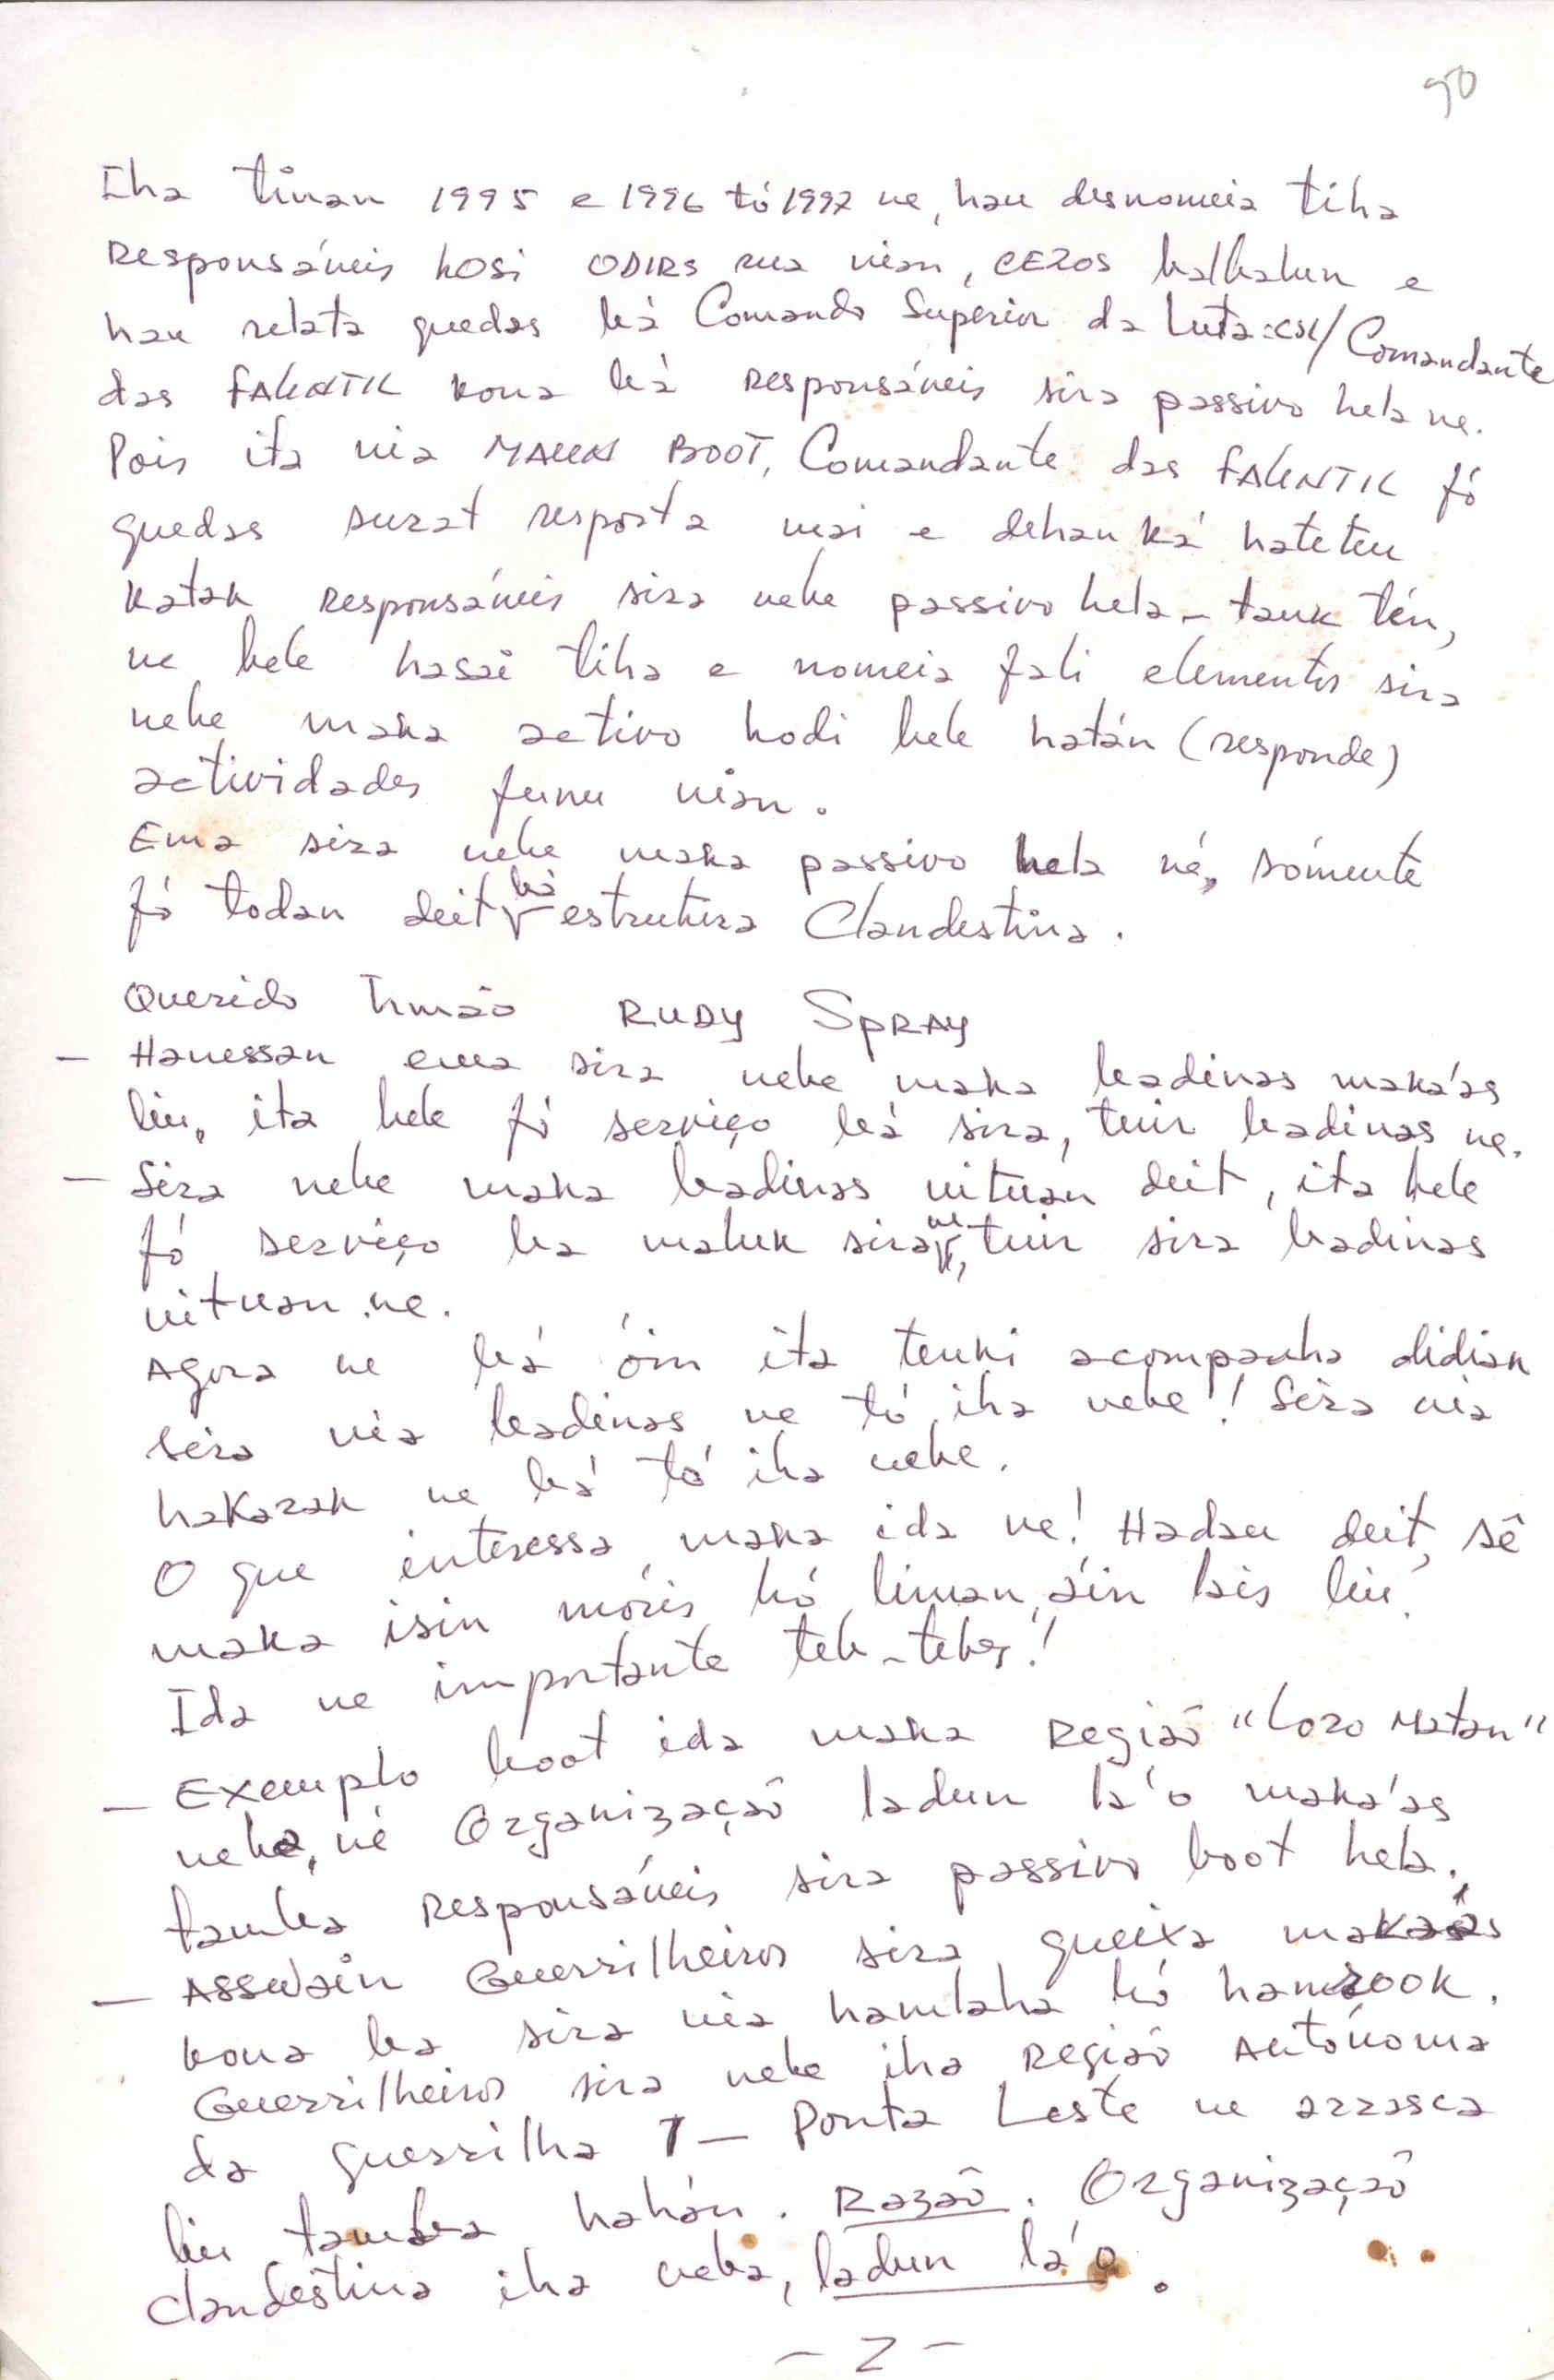 90
Iha tinan 1995 e 1996 tó 1997 ne, hau desnomeia tiha
Responsáveis hosi ODIRS rua nian, CEZOS balbalun e
hau relata quedas bá Comando Superior da Luta=CSL/Comandante
das FALINTIL kona bá Responsáveis sira passivo hela ne.
Pois ita nia MAUN BOOT, Comandante das FALINTIL fó
quedas surat resposta mai e dehan ká hateten
katak Responsáveis sira nebe passivo hela - tauk tén,
ne bele hasai tiha e nomeia fali elementos sira
nebe maka activo hodi bele hatán (responde)
actividades funu nian.
Ema sira nebe maka passivo hela né, sómente
fó todan deit bá estrutura Clandestina.
Querido Irmão RUDY SPRAY
- Hanessan ema sira nebe maka badinas maká'as
liu, ita bele fó serviço bá sira, tuir badinas ne.
- Sira nebe maka badinas nituan deit, ita bele
fó serviço ba maluk sira ne, tuir sira badinas
nituan ne.
Agora ne bá óin ita tenki acompanha didiak
sira nia badinas ne tó iha nebe! Sira nia
hakarak ne bá tó iha nebe.
O que interessa maka ida ne! Hadau deit, sé
maka isin móris hó liman, áin lais liu!
Ida ne importante teb-tebes!
- Exemplo boot ida maka Região "Loro Matan"
neba, né Organização ladun lá'o maká'as
tamba Responsáveis sira passivo boot hela.
- Asswáin Guerrilheiros sira queixa makaás
kona ba sira nia hamlaha hó hamrook.
Guerrilheiros sira nebe iha Região Autónoma
da guerrilha 1 - Ponta Leste ne arrasca
liu tamba hahán. Razão. Organização
Clandestina iha neba, ladun lá'o.
- 2 -